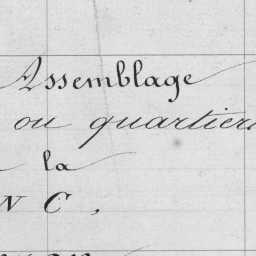 Assemblage
ou quartiers
la
N C,